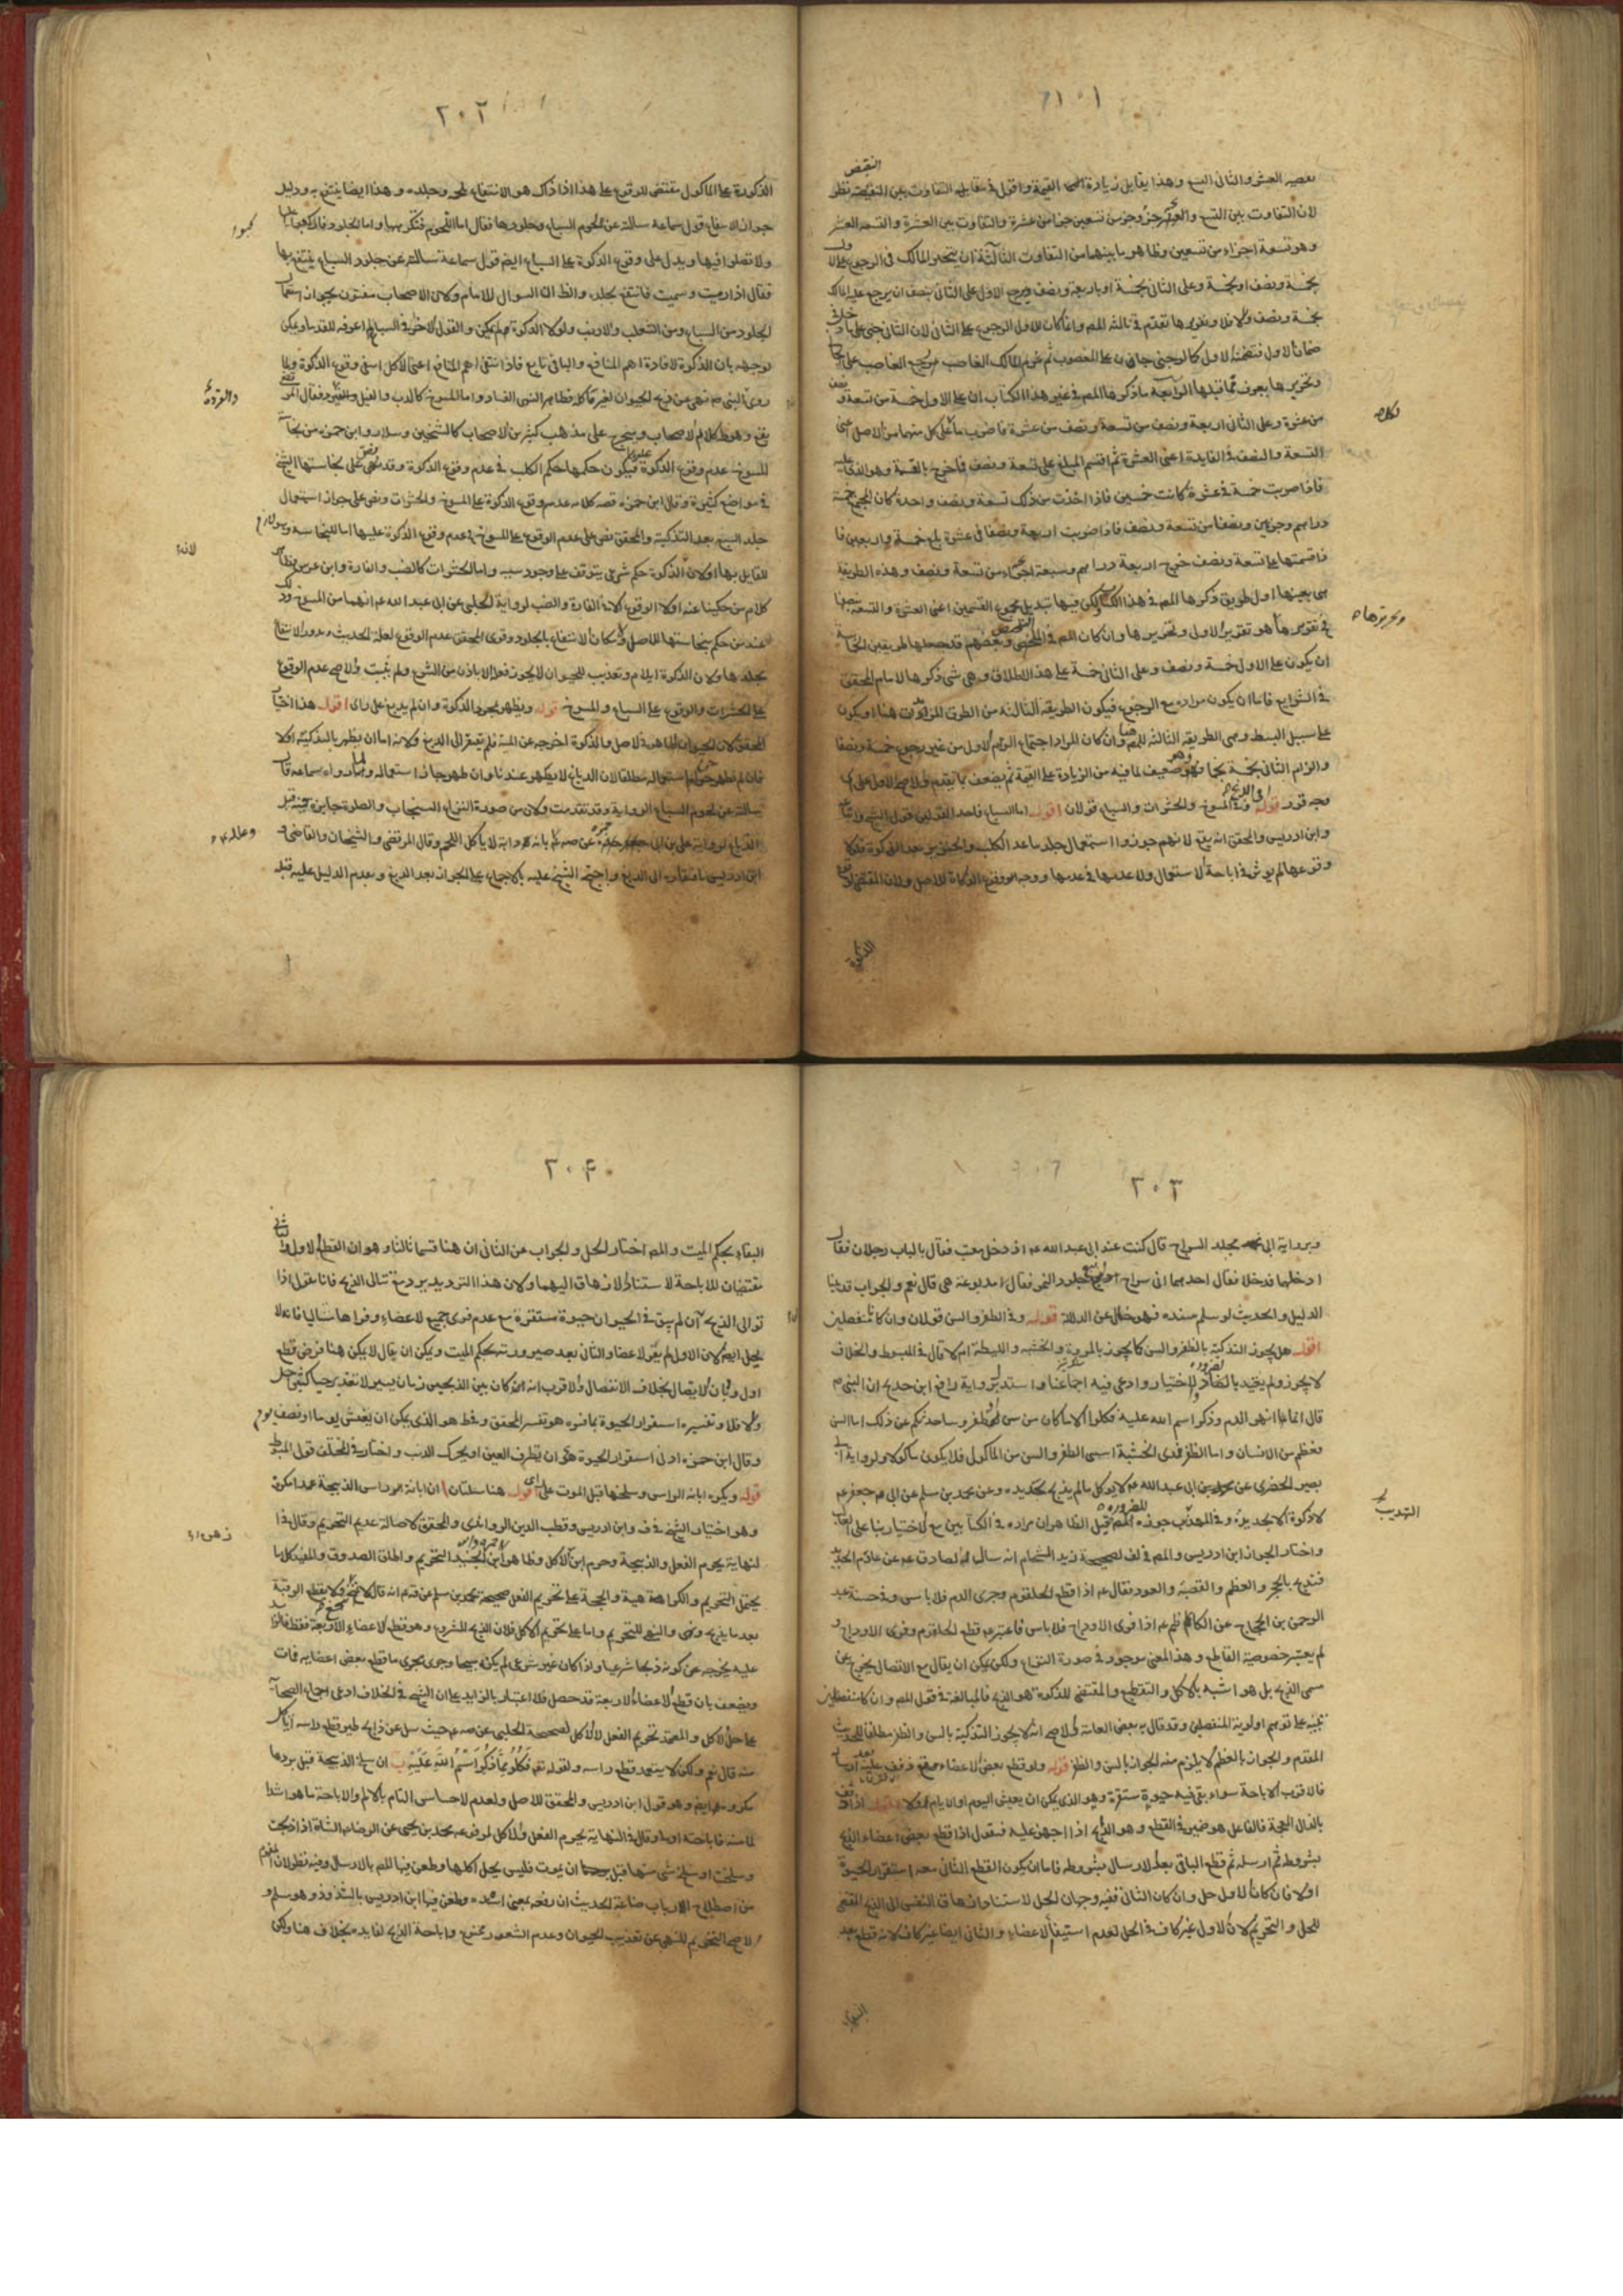 ٢٠١
بعصير العشر والثانى التسع وهذا يقابل زيادة القيمة واقول فى مقابله التفاوت بين النقيصه نظر
النقيض
لان التفاوت بين التسع والعشر جزؤ وجزء من تسعين جزا من عشرة والتفاوت بين العشرة والتسعه العشر
وهو تسعة اجزاء من تسعين وظاهر ما بينهما من التفاوت الثالثة ان يتخير المالك فى الرجوع على الاول
بخمسة ونصف او بخمسة وعلى الثانى بخمسة او باربعة ونصف ويرجع الاول على الثانى بنصف ان يرجع عليه المالك
بخمسة ونصف والا فلا وتقريرها تقدم فى ثالثه المصر وانما كان للاول الرجوع على الثانى لان الثانى جنى على ما دخل فى
ضمان الاول فتضمنه الاول كما لو جنى جان على المغصوب ثم غرم المالك الغاصب يرجع الغاصب على الجانى
وتحريرها يعرف مما قبلها الرابعة ما ذكرها المصر فى غير هذا الكتاب ان على الاول خمسة من تسعة ونصف
من عشرة وعلى الثانى اربعة ونصف من تسعة ونصف من عشرة فاضرب ما على كل منهما من الاصل اعنى
التسعة والنصف فى الفايدة اعنى العشرة ثم اقسم المبلغ على تسعة ونصف فاخرج بالقسمة وهو الذى عليه
فاذا ضربت خمسة فى عشرة كانت خمسين فاذا اخذت من ذلك تسعة ونصف واحدة كان الجميع خمسة
دراهم وجزءين ونصفا من تسعة ونصف فاذا ضربت اربعة ونصفا فى عشرة بلغ خمسة واربعين فا
فاقسمتها على تسعة ونصف خرج اربعة دراهم وسبعة اجزاء من تسعة ونصف وهذه الطريقة
هى بعينها اول طريق ذكرها المصر فى هذا الكتاب لكن فيها تبديل مجموع القسمين اعنى العشرة والتسعة بنصفها
فى تقريرها هو تقرير الاول وتحريرها وان كان المصر فى التلخيص وبعضهم قد جعلها طريقين الخامسة
ان يكون على الاول خمسة ونصف وعلى الثانى خمسة على هذا الاطلاق وهى شى ذكرها الامام المحقق
فى الشرايع فاما ان يكون مراده مع الرجوع فيكون الطريقة الثالثة من الطرق المذكورات هنا او يكون
على سبيل البسط وهى الطريقه الثالثه للمصر هنا وان كان المراد اجتماع الزام الاول من غير رجوع خمسة ونصفا
والزام الثانى بخمسة بحا فهو ضعيف لما فيه من الزيادة على القيمة ثم يضعف بما تقدم والاصح الاول على ما
وجه قرر قوله وفى المسوخ والحشرات والسباع قولان اقول اما السباع فاحد القولين قول الشيخ واتباعه
وابن ادريس والمحقق انه يقع لانهم جوزوا استعمال جلد ما عدا الكلب والخنزير بعد الذكوة فلولا
وقوعها لم يؤثر فى اباحة الاستعمال ولا عدمها فى عدمها ووجه الوقوع الذكاة للاصل ولان المقتضى لوقوع
الذكوة
وتحريرها
٢٠٢
الذكورة على الماكول مقتضى للوقوع على هذا اذا ذاك هو الانتفاع بلحمه وجلده وهذا ايضا ينتفع به ودليل
جواز الانتفاع قول سماعة سالته عن لحوم السباع وجلودها فقال اما اللحوم فنكرهها واما الجلود فاركبوا عليها
ولا تصلوا فيها ويدل على وقوع الذكوة على السباع ايضم قول سماعة سالته عن جلود السباع ينتفع بها
فقال اذا رميت وسميت فانتفع بجلده والظ ان السوال للامام ولان الاصحاب مفتون بجواز استعمال
الجلود من السباع ومن الثعلب والارنب ولولا الذكوة لم يمكن والقول الاخر فى السباع لم اعرفه للقدماء ويمكن
توجيهه بان الذكوة لافادة اهم المنافع والباقى تابع فاذا انتفى اهم المنافع اعنى الاكل انتفى وقوع الذكوة ولما
روى النبى ص نهى عن ذبح الحيوان لغير ماكله فظاهر النهى الفساد واما المسوخ كالدب والفيل والقرد فقال المرتضى
والقردة
يقع وهو ظ كلام الاصحاب ويتخرج على مذهب كثير من الاصحاب كالشيخين وسلار وابن حمزه من نجاسة
المسوخ عدم وقوع الذكوة عليها فيكون حكمها حكم الكلب فى عدم وقوع الذكوة وقد نص على نجاستها الشيخ
فى مواضع كثيرة وقال ابن حمزه قصه كلامه عدم وقوع الذكوة على المسوخ والحشرات ونص على جواز استعمال
جلد السبع بعد التذكية والمحقق نص على عدم الوقوع على المسوخ فى عدم وقوع الذكوة عليها اما للنجاسه
للقايل بها او لان الذكوة حكم شرعى يتوقف على وجود سببه واما الحشرات كالضب والفارة وابن عرس فظاهر
كلام من حكينا عنه اولا الوقوع الا فى الفارة والضب لرواية الحلبى عن ابى عبد الله ع انهما من المسوخ
عند من حكم بنجاستها للاصل ولامكان الانتفاع بالجلود وقوى المحقق عدم الوقوع لعلة الحديث وندور الانتفاع
بجلدها ولان الذكوة ايلام وتعذيب للحيوان لا يجوز فعله الا باذن من الشرع ولم يثبت والاصح عدم الوقوع
على الحشرات والوقوع على السباع والمسوخ قوله ويطهر بمجرد الذكوة وان لم يدبغ على راى اقول هذا اختيار
المحقق لان الحيوان طاهر فى الاصل والذكوة اخرجته عن الميتة فلم يفتقر الى الدبغ ولانه اما ان يطهر بالتذكية اولا
فان لم يطهر حرم استعماله مطلقا لان الدباغ لا يطهر عندنا وان طهر جاز استعماله ولما رواه سماعه قال
سالته عن لحوم السباع الرواية وقد تقدمت ولان من صورة النزاع السنجاب والصلوة جايزة فيه قبل
الدباغ لرواية على بن ابى حمزه عن ص ع بانه دابة لا ياكل اللحم وقال المرتضى والشيخان والقاضى و
ابن ادريس بافتقاره الى الدبغ واحتج الشيخ عليه بالاجماع على الجواز بعد الدبغ وبعدم الدليل عليه قبل
٣٠٣
وبرواية ابى مخلد السراج قال كنت عند ابى عبد الله ع اذ دخل معتب فقال بالباب رجلان فقال
ادخلهما فدخلا فقال احدهما انى سراج ابيع جلود النمر فقال امدبوغة هى قال نعم والجواب قد بينا
الدليل والحديث لو سلم سنده فهو خال عن الدلالة قوله وفى الظفر والسن قولان وان كانا منفصلين
اقول هل يجوز التذكية بالظفر والسن كما يجوز بالمروة والخشبه والليطة ام لا قال فى المبسوط والخلاف
لا يجوز ولم يقيد بالضرورة والاختيار وادعى فيه اجماعنا واستدل برواية رافع ابن خديج ان النبى ص
قال انما انهر الدم وذكر اسم الله عليه فكلوا الا ما كان من سن او ظفر وساحدثكم عن ذلك اما السن
فعظم من الانسان واما الظفر فمدى الحبشة اسمى الظفر والسن من الماكول فلا يكون ماكولا ولرواية ابى
بصير الحضرى عن ابى عبد الله ع لا يوكل ما لم يذبح بحديده وعن محمد بن مسلم عن ابى جعفر ع
لا ذكوة الا بحديد وفى المهذب جوزه للضرورة قيل الظاهر ان مراده فى الكتابين مع الاختيار بنا على الغالب
التهذيب
واختار الجواز ابن ادريس والمصر فى لف لصحيحة زيد الشحام انه سال الصادق ع عن عادم الحديد
فنذبح بالحجر والعظم والقصبه والعود فقال ع اذا قطع الحلقوم وجرى الدم فلا باس وفى حسنة عبد
الرحمن بن الحجاج عن الكاظم ع اذا فرى الاوداج فلا باس فاعتبر ع قطع الحلقوم وفرى الاوداج و
لم يعتبر خصوصية القاطع وهذا المعنى موجود فى صورة النزاع ولكن يمكن ان يقال مع الاتصال يخرج عن
مسمى الذبح بل هو اشبه بالاكل والتقطيع والمقتضى للذكوة هو الذبح فالمبالغة فى قول المصر وان كانا منفصلين
تنبيه على توهم اولوية المنفصلين وقد قال به بعض العامة والاصح انه لا يجوز التذكية بالسن والظفر مطلقا للحديث
المقدم والجواز بالعظم لا يلزم منه الجواز بالسن والظفر قوله ولو قطع بعض الاعضاء
فالاقرب الاباحة سواء بقى فيه حيوة مستقرة وهو الذى يمكن ان يعيش اليوم او الايام اولا اقول اذا
بالذال المعجمة فالفاعل هو ضمير فى القطع وهو الذبح اذا اجهز عليه فنقول اذا قطع بعض اعضاء الذبح
بشروطه ثم ارسله ثم قطع الباقى بعد الارسال بشروطه فاما ان يكون القطع الثانى معه استقرار الحيوة
اولا فان كان الاول حل وان كان الثانى ففيه وجهان الحل لاستناد ازهاق النفس الى الذبح المقتضى
للحل والتحريم لان الاول غير كاف فى الحل لعدم استيفا الاعضاء والثانى ايضا غير كاف لانه قطع بعد
٢٠۴
البقاء بحكم الميت والمصر اختار الحل والجواب عن الثانى ان هنا قسما ثالثا وهو ان القطع الاول والثانى
مقتضيان للاباحة لاستناد الازهاق اليهما ولان هذا الترديد يرد مع تتالى الذبح فانا نقول اذا
توالى الذبح ان لم يبق فى الحيوان حيوة مستقرة مع عدم فرى جميع الاعضاء وفراها متتاليا فانه لا
يحل ايضم لان الاول لم يفر الاعضا والثانى بعد صيرورته بحكم الميت ويمكن ان يقال لا يمكن هنا فرض قطع
اول وثان لاتصال بخلاف الانفصال والاقرب انه ان كان بين الذبحين زمان يسير لا تقدير حيا كفى حل
والا فلا وتفسيره استقرار الحيوة بما فسره هو تفسير المحقق وفى ط هو الذى يمكن ان يعيش يوما او نصف يوم
وقال ابن حمزه ادنى استقرار الحيوة هو ان تطرف العين او يحرك الذنب واختار فى المختلف قول المبسوط
قوله ويكره ابانه الراس وسلخها قبل الموت على راى اقول هنا مسئلتان ا ان ابانة الراس الذبيحة عمدا مكروه
وهو اختيار الشيخ فى ف وابن ادريس وقطب الدين الراوندى والمحقق لاصالة عدم التحريم وقال فى ا
لنهاية يحرم الفعل والذبيحة وحرم ابن الاكل وظاهر ابن الجنيد التحريم واطلق الصدوق والمفيد كلاما
يحتمل التحريم والكراهة هية والحجة على تحريم الفعل صحيحة محمد بن مسلم عن ق ع انه قال لا تنخع ولا يقطع الرقبة
بعد ما يذبح ونهى والنهى للتحريم واما على تحريم الاكل فلان الذبح المشروع وهو قطع الاعضاء الاربعة فقط فالزايد
عليه يخرجه عن كونه ذبحا شرعيا واذا كان غير شرعى لم يكن مبيحا وجرى مجرى ما قطع بعض اعضايه فمات
ويضعف بان قطع الاعضاء الاربعة قد حصل فلا اعتبار بالزايد على ان الشيخ فى الخلاف ادعى اجماع الصحابة
على حل الاكل والمعتمد تحريم الفعل لا الاكل لصحيحة الحلبى عن ص ع حيث سل عن ذابح طير قطع راسه ايوكل
منه قال نعم ولكن لا يتعمد قطع راسه ولقوله تع فكلوا مما ذكر اسم الله عليه ب ان سلخ الذبيحة قبل بردها
مكروه ايضم وهو قول ابن ادريس والمحقق للاصل ولعدم الاحساس التام بالالم والاباحة ما هو اشد
الما منه فاباحته اولى وقال فى النهاية يحرم الفعل والاكل لمرفوعه محمد بن يحيى عن الرضا ع الشاة اذا ذبحت
وسلخت او سلخ شى منها قبل ان يموت فليس يحل اكلها وطعن فيها المصر بالارسال وفيه نظر لان المفهوم
من اصطلاح ارباب صناعة الحديث ان رفعه بمعنى اسنده وطعن فيها ابن ادريس بالشذوذ وهو سلم و
الاصح التحريم للنهى عن تعذيب الحيوان وعدم الشعور ممنوع واباحة الذبح لفايده بخلاف هنا ولكن